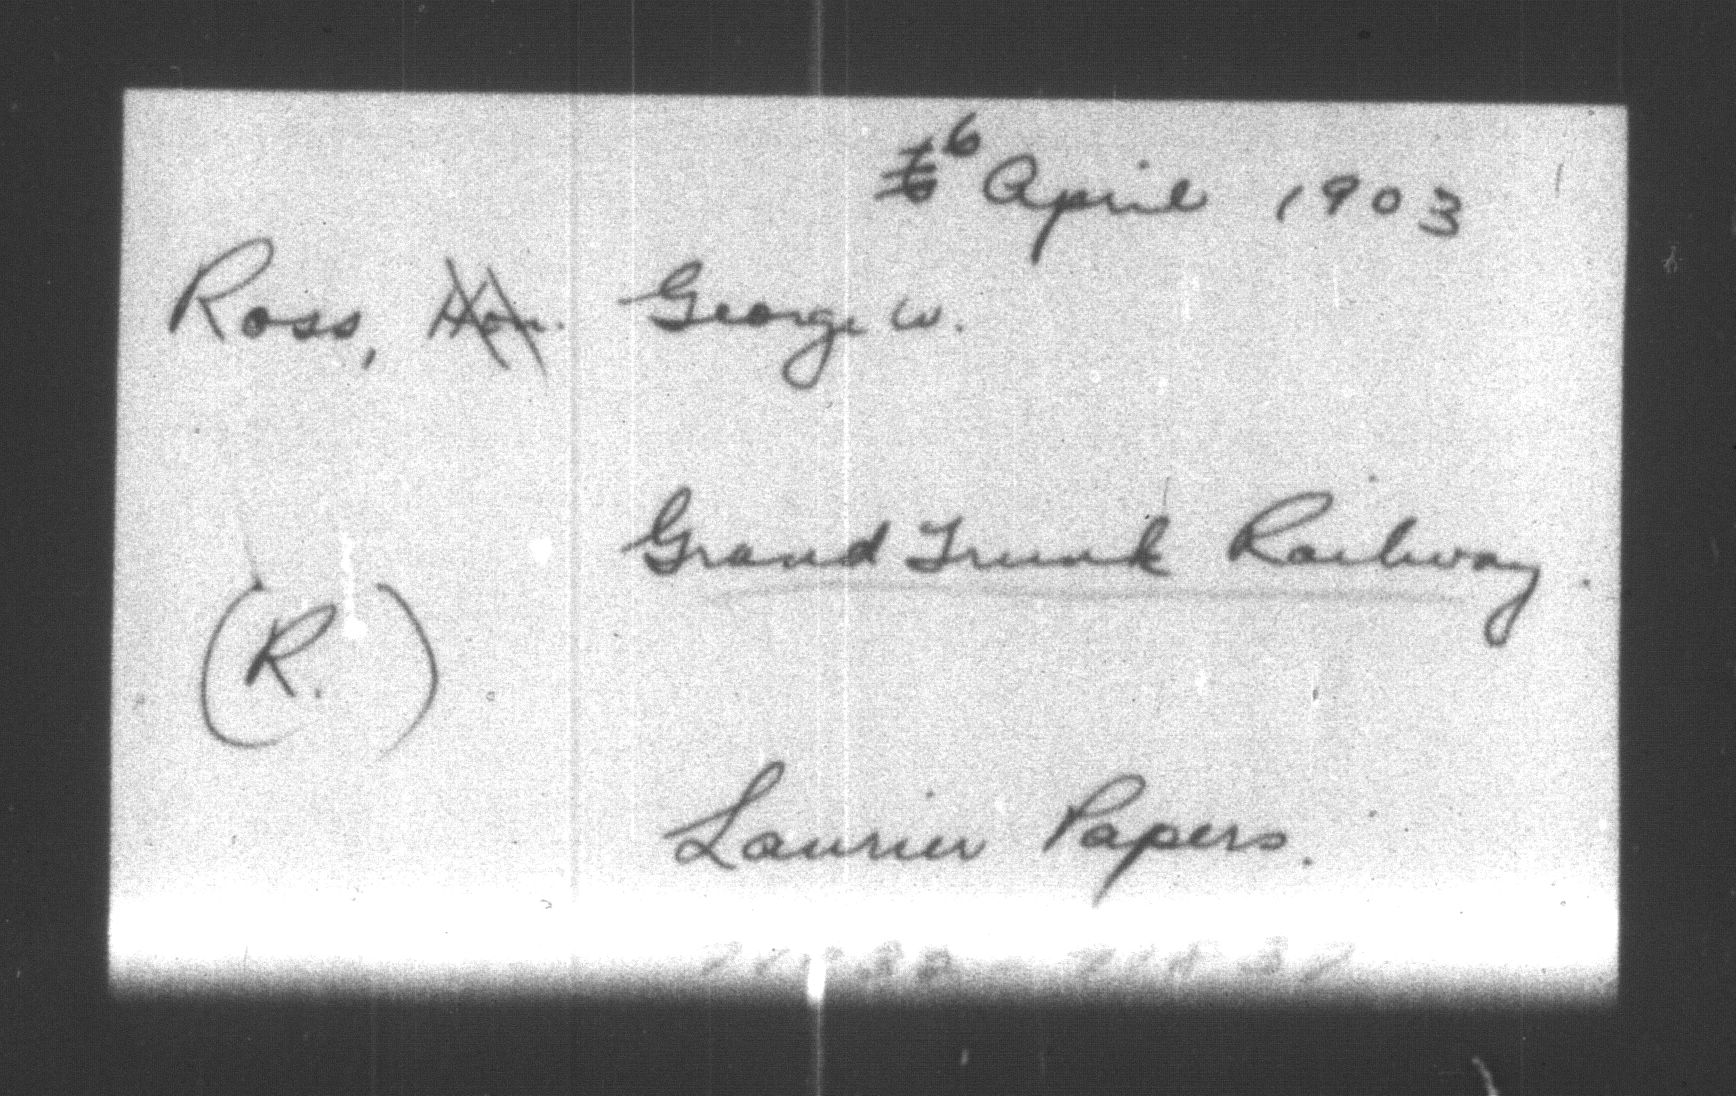 6 April 1903
Ross, Hon. George W.
Grand Trunk Railway.
(R.)
Laurier Papers.